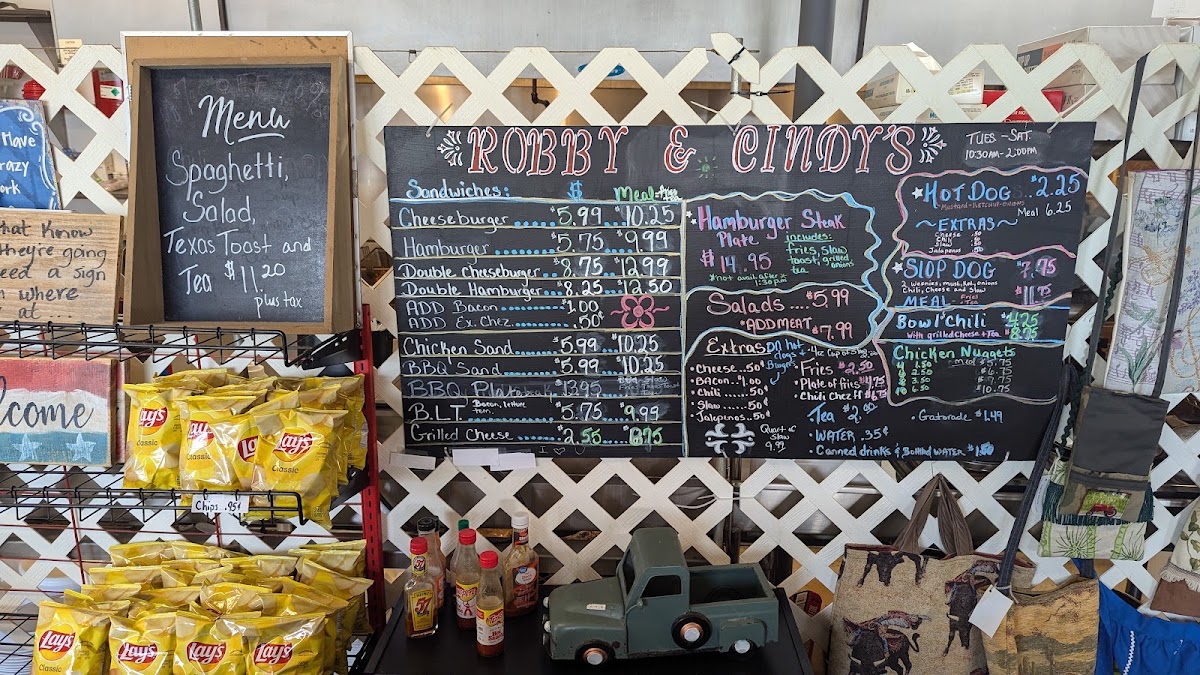 Have
razy
ork
hat Know
hey're going
eed a sign
where
at ...
elcome
Menu
Spaghetti,
Salad,
Texas Toast and
Tea $11.20
plus tax
Lay's
Classic
Chips .95¢
ROBBY & CINDY'S
TUES - SAT.
10:30AM-2:00PM
Sandwiches: $ Meal
Cheeseburger $5.99 $10.25
Hamburger $5.75 $9.99
Double cheeseburger $8.75 $12.99
Double Hamburger $8.25 $12.50
ADD Bacon $1.00
ADD Ex. Chez .50¢
Chicken Sand $5.99 $10.25
BBQ Sand $5.99 $10.25
BBQ Plate
B.L.T. Bacon, lettuce $5.75 $9.99
Grilled Cheese $2.55
Hamburger Steak
Plate
includes:
fries, slaw
toast, grilled
onions
tea
$14.95
*not avail after
1:30pm
Salads $5.99
•ADD MEAT $7.99
Extras
On hot
dogs &
Burgers
•Cheese .50¢
•Bacon $1.00
•Chili .50¢
•Slaw .50¢
Jalepenos .50¢
Quart of
Slaw
9.99
•Fries $2.50
•Plate of fries $4.75
•Chili Chez ff $6.75
Tea $2.00
•WATER .35¢
•Canned drinks & Bottled WATER
•Gatorade $1.49
HOT DOG $2.25
Mustard-Ketchup-onions
Meal 6.25
~EXTRAS~
Cheese .50
Chili .50
Slaw .50
Jalapenos .50
SLOP DOG $7.75
2 weenies, must, Ket, onions
Chili, Cheese and Slaw
MEAL - Fries + Tea $11.75
Bowl Chili
With grilled Cheese + Tea
Chicken Nuggets
4 1.50
6 2.50
8 3.50
10 6.50